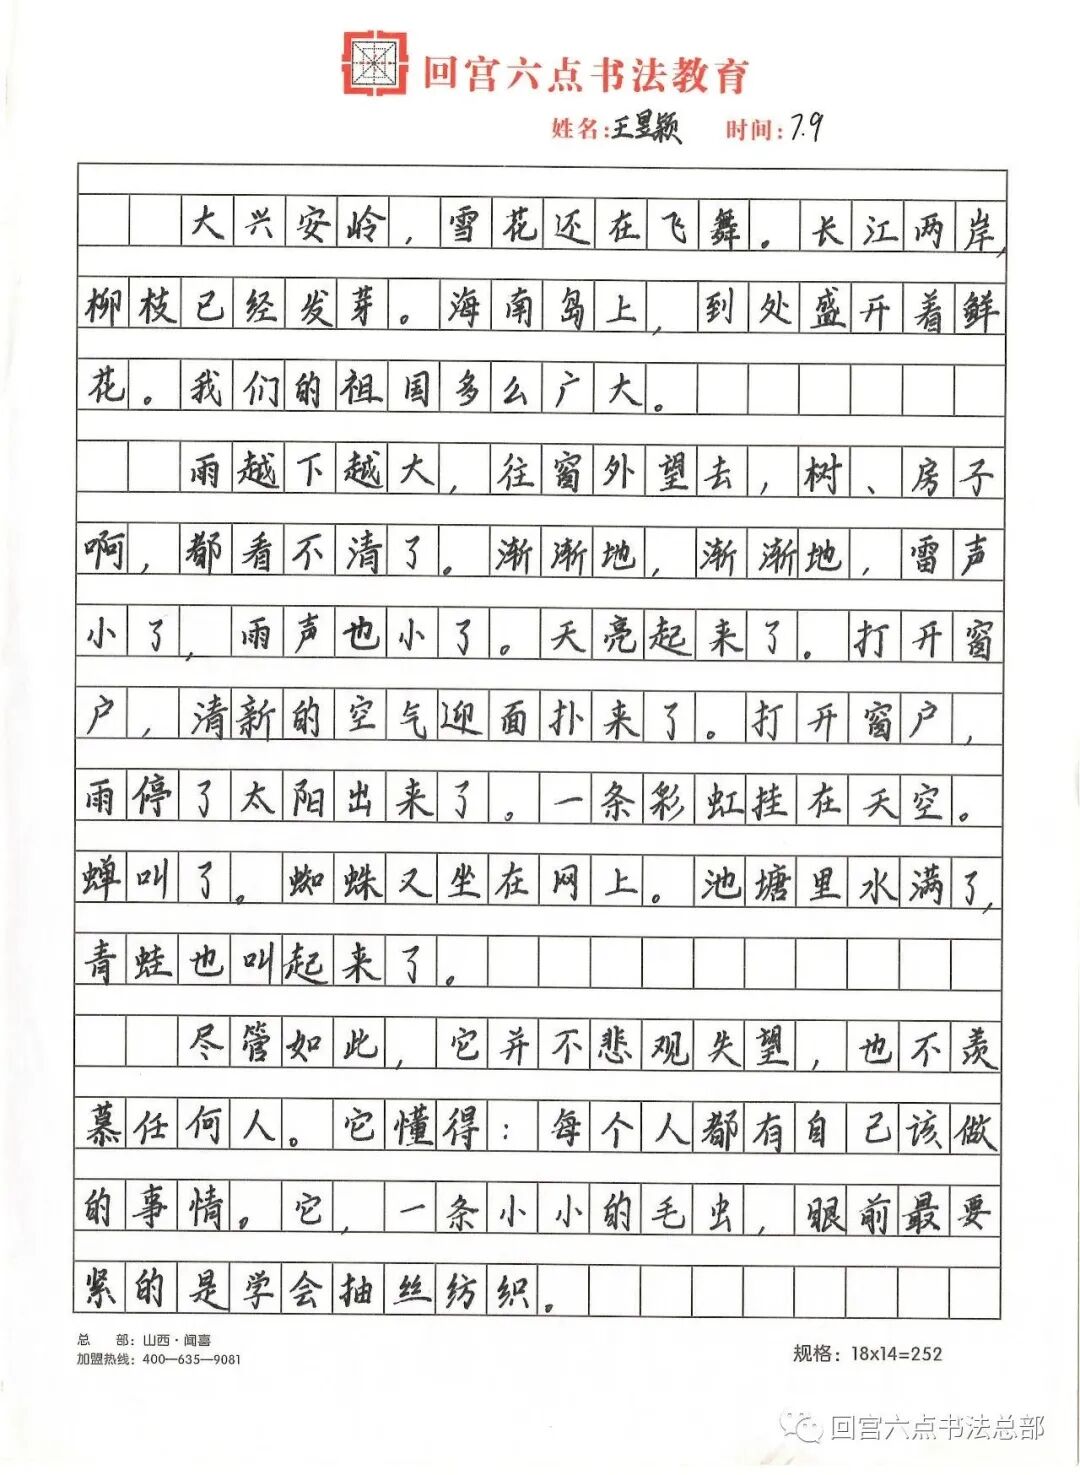 回宫六点书法教育
姓名:王昱颖 时间:7.9
大兴安岭，雪花还在飞舞。长江两岸，
柳枝已经发芽。海南岛上，到处盛开着鲜
花。我们的祖国多么广大。
雨越下越大，往窗外望去，树、房子
啊，都看不清了。渐渐地，渐渐地，雷声
小了，雨声也小了。天亮起来了。打开窗
户，清新的空气迎面扑来了。打开窗户，
雨停了太阳出来了。一条彩虹挂在天空。
蝉叫了。蜘蛛又坐在网上。池塘里水满了，
青蛙也叫起来了。
尽管如此，它并不悲观失望，也不羡
慕任何人。它懂得：每个人都有自己该做
的事情。它，一条小小的毛虫，眼前最要
紧的是学会抽丝纺织。
总 部：山西·闻喜
加盟热线：400—635—9081
规格：18x14=252
回宫六点书法总部